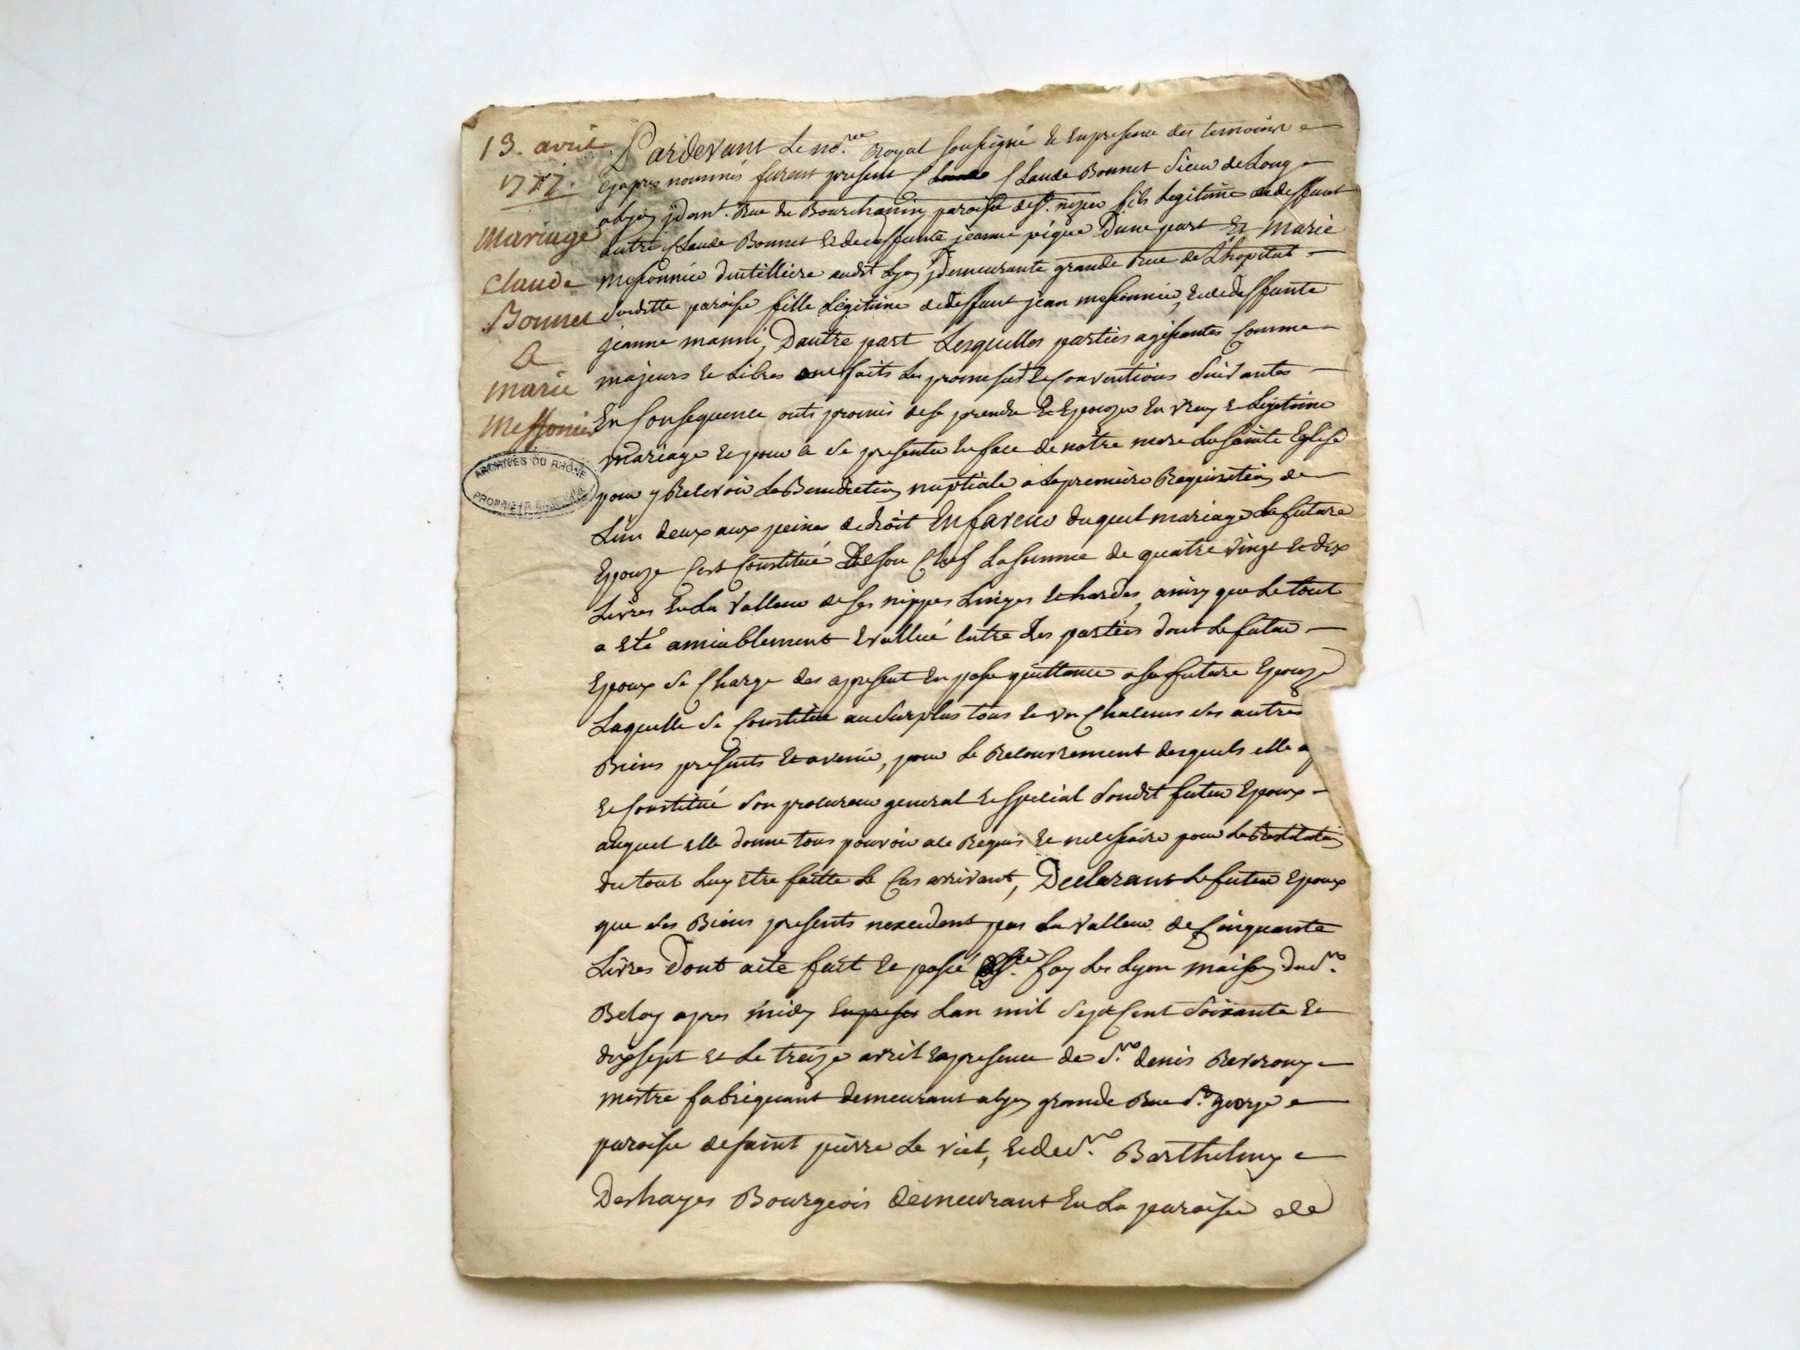 13. avril
1777.
Mariage
Claude
Bonnet
a
marie
Messonier
ARCHIVES DU RHÔNE
PROPRIÉTÉ
Pardevant Le no.re Royal soussigné et en presence des temoins
cy apres nommés furent present Claude Bonnet Sieur de Long
a lyon y dem.t Rue du Bourchanin paroisse de st. nizier fils Legitime de deffunt
autre Claude Bonnet et de deffunte jeanne pique D'une part Et Marie
Messonnier audit lyon y demeurante grande Rue de L'hopital
Surditte paroisse fille Légitime de deffunt jean messonnier, et de deffunte
jeanne manni, D'autre part Lesquelles parties agissantes Comme
majeurs et Libres ont faits Les promesses et Conventions Suivantes
En Consequence onts promis de se prendre Et Epouzer En vray et Légitime
mariage et pour ce Se presenter En face de nôtre mere La Sainte Eglise
pour y Recevoir La Benediction nuptiale a La premiere Requisition de
L'un deux aux peines de droit En faveur duquel mariage La future
Epouze S'est Constitué De son Chef La somme de quatre vingt et dix
Livres En La Valleur de ses nippes Linges et hardes, ainsy que Le tout
a Eté amiablement Evallué Entre Les parties dont Le futur
Epoux Se Charge des apresent En passe quittance a sa future Epouze
Laquelle Se Constitue au Surplus tous et un Chacuns Ses autres
Biens presents et avenir, pour Le Recouvrement desquels elle a
et Constitué Son procureur general et Special Soudit futur Epoux
auquel elle donne tous pouvoir a ce Requis et necessaire pour La Restitution
du tout Luy etre faitte Le Cas arrivant, Declarant Le futur Epoux
que Ses Biens presents nexcedent pas La Valleur de Cinquante
Livres Dont acte fait et passé a Ste. foy Les Lyon maison du Sr.
Beloy apres midy Lan mil Sept Cent Soixante et
dix sept et Le treize avril En presence de S.r denis Reverony
maitre fabriquant demeurant a lyon grande Rue St. george
paroisse de saint pierre Le viel, et de S.r Barthelmy
Deshayes Bourgeois demeurant En La paroisse de